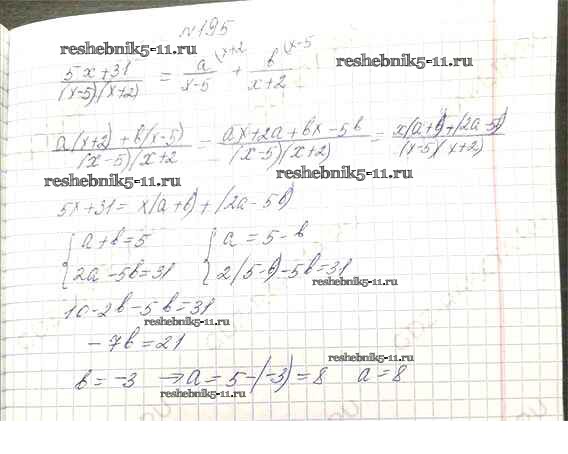 №195
reshebnik5-11.ru
(5x+31)/((x-5)(x+2)) = a/(x-5) (x+2 + b/(x+2) (x-5 reshebnik5-11.ru
(a(x+2)+b(x-5))/((x-5)(x+2) = (ax+2a+bx-5b)/((x-5)(x+2)) = (x(a+b)+(2a-5b))/((x-5)(x+2))
reshebnik5-11.ru reshebnik5-11.ru
5x+31=x(a+b)+(2a-5b)
{ a+b=5 { a=5-b
2a-5b=31 2(5-b)-5b=31
reshebnik5-11.ru
10-2b-5b=31
reshebnik5-11.ru
-7b=21
reshebnik5-11.ru
b=-3 → a=5-(-3)=8 a=8
reshebnik5-11.ru